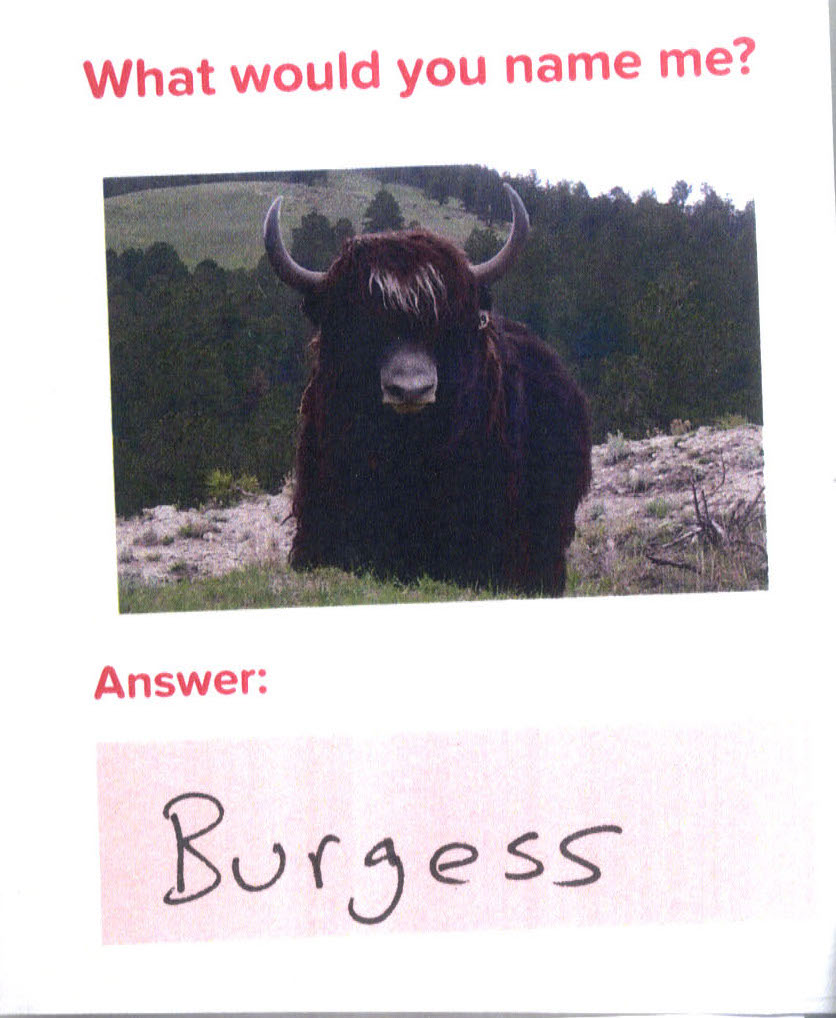 What would you name me?
Answer:
Burgess